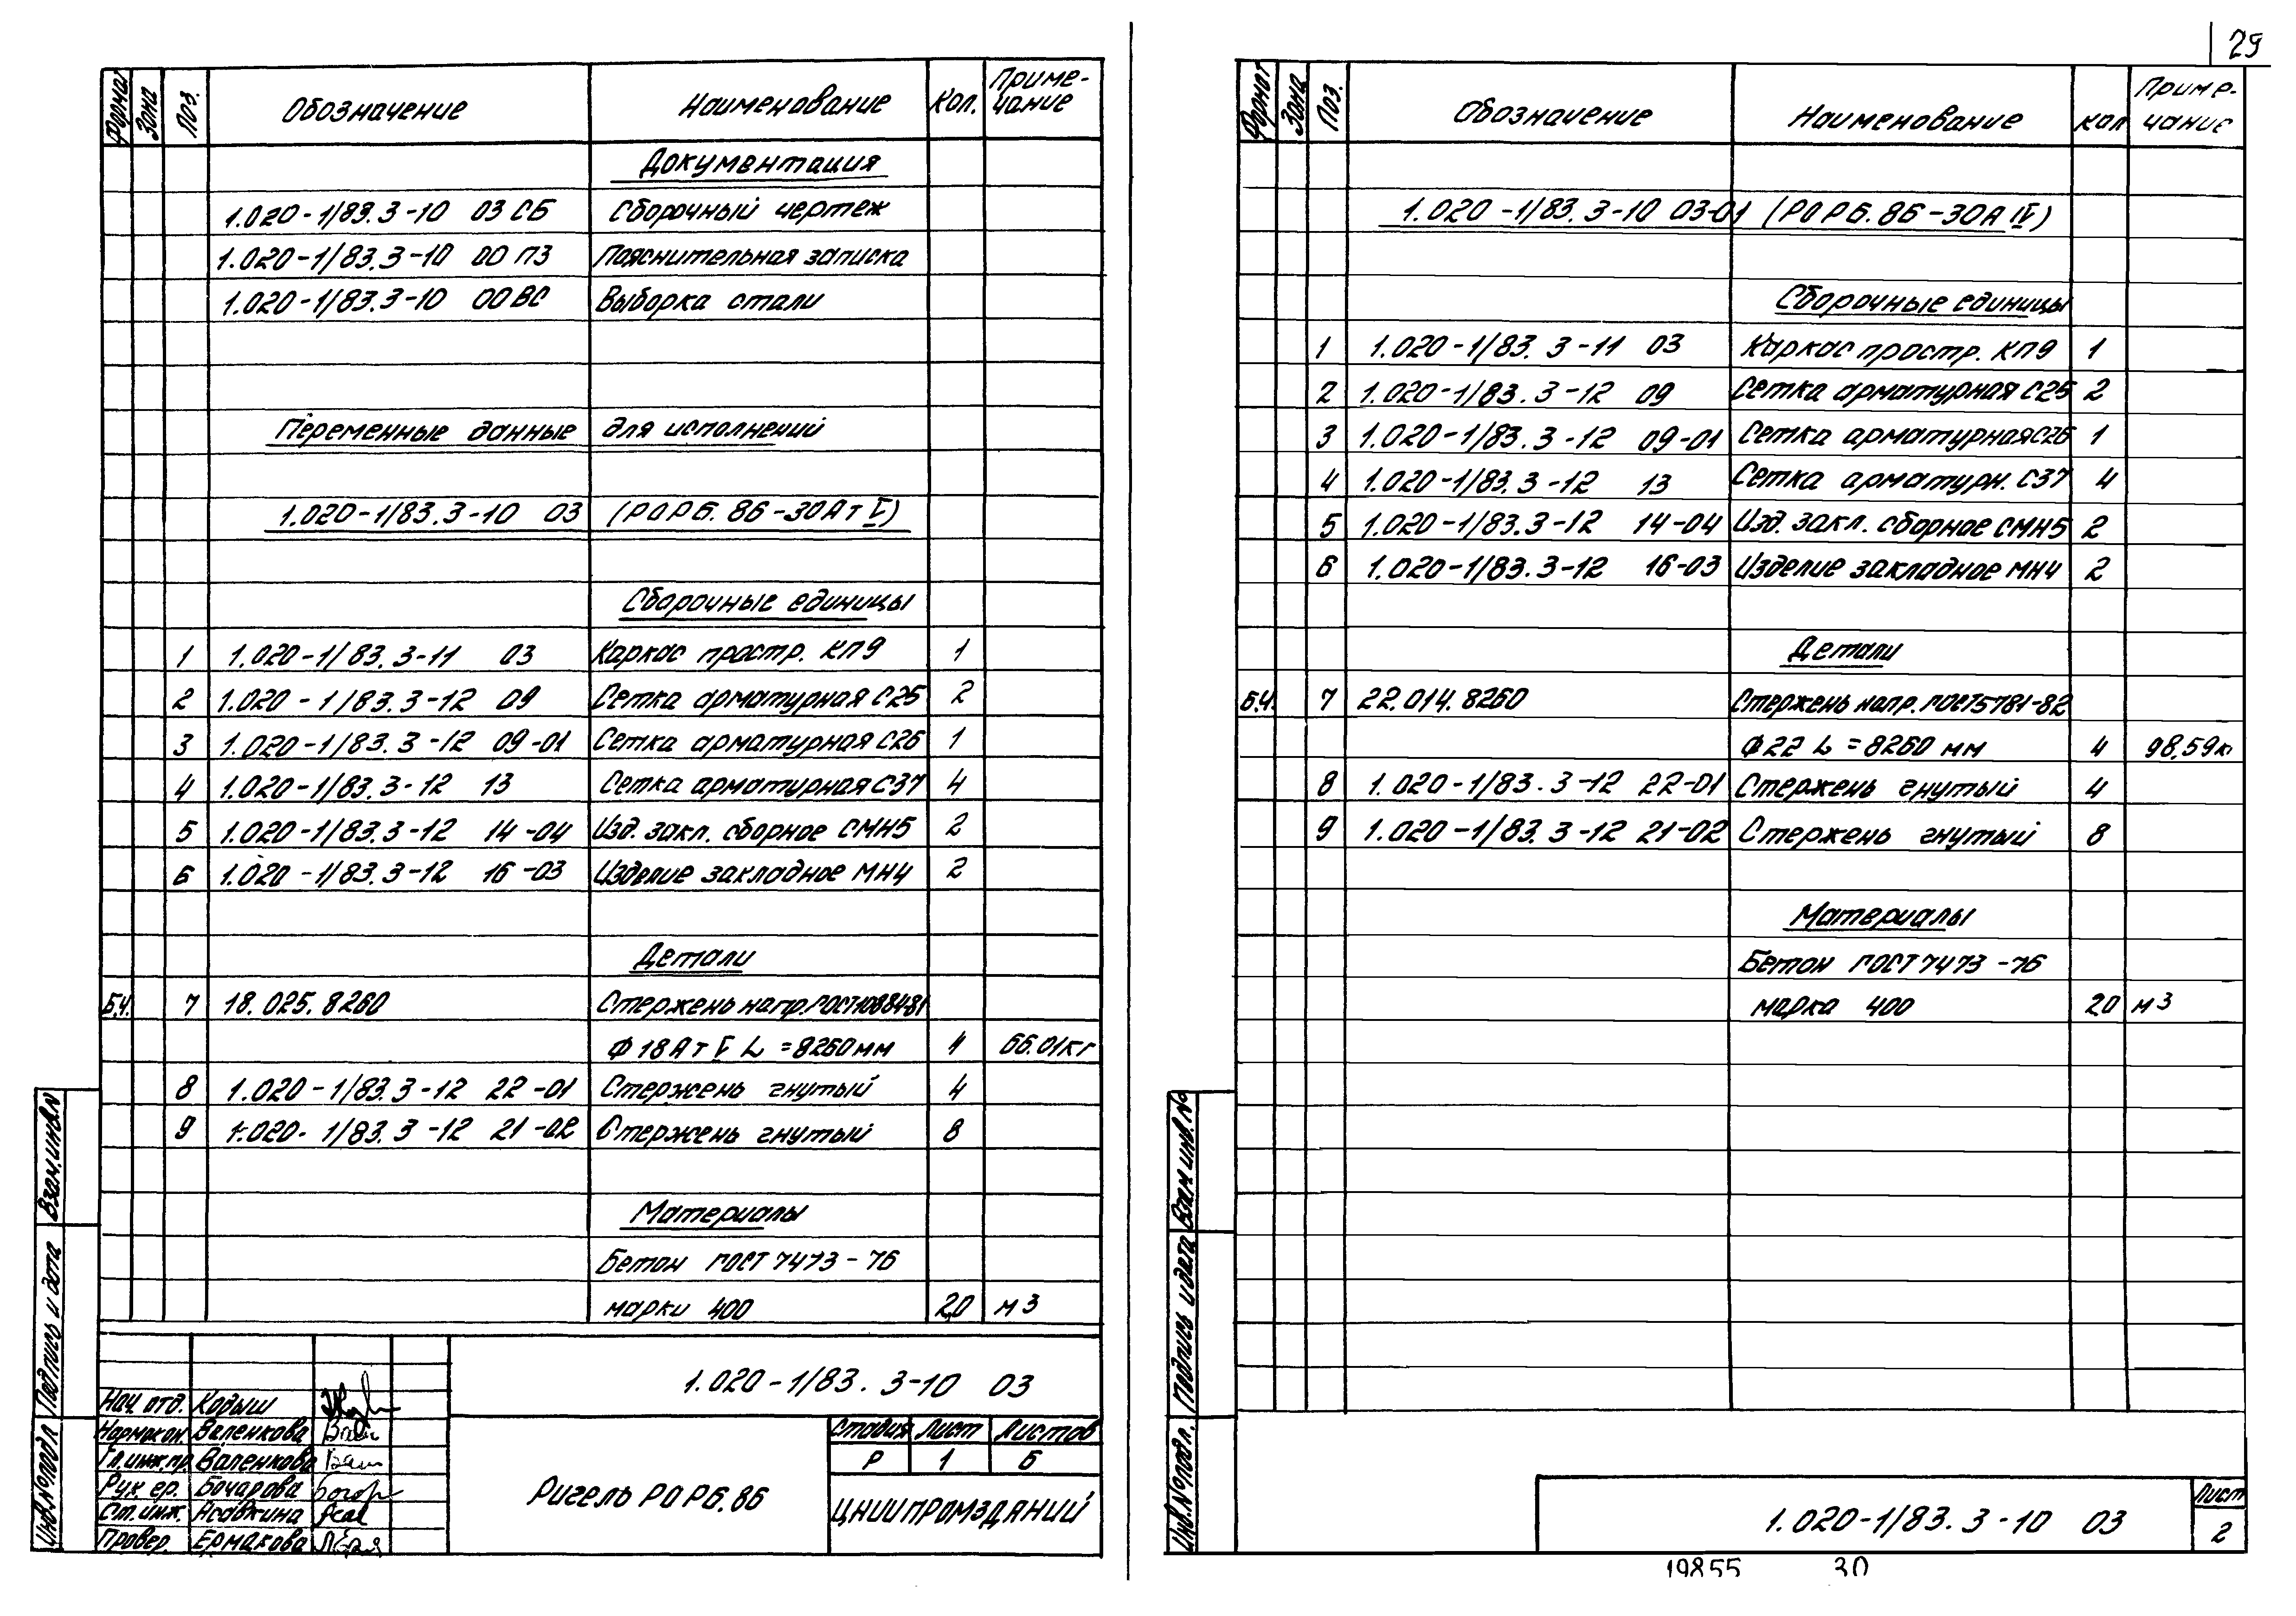 29
Формат Зона Поз. Обозначение Наименование Кол. Приме-
чание
Документация
1.020-1/83.3-10 03 СБ Сборочный чертеж
1.020-1/83.3-10 00 ПЗ Пояснительная записка
1.020-1/83.3-10 00 ВС Выборка стали
Переменные данные для исполнений
1.020-1/83.3-10 03 (РОР6.86-30Ат V)
Сборочные единицы
1 1.020-1/83.3-11 03 Каркас простр. КП9 1
2 1.020-1/83.3-12 09 Сетка арматурная С25 2
3 1.020-1/83.3-12 09-01 Сетка арматурная С26 1
4 1.020-1/83.3-12 13 Сетка арматурная С37 4
5 1.020-1/83.3-12 14-04 Изд. закл. сборное СМН5 2
6 1.020-1/83.3-12 16-03 Изделие закладное МН4 2
Детали
Б.Ч. 7 18.025.8260 Стержень напр. ГОСТ10884-81
Ф 18Ат V L = 8260мм 4 66.01кг
8 1.020-1/83.3-12 22-01 Стержень гнутый 4
9 1.020-1/83.3-12 21-02 Стержень гнутый 8
Материалы
Бетон ГОСТ 7473-76
марки 400 2,0 м3
Взам.инв.N
Подпись и дата
Инв.№подл
1.020-1/83.3-10 03
Нач. отд. Кодыш
Нормокон. Валенкова
Гл.инж.пр. Валенкова
Рук. гр. Бочарова
Ст. инж. Асавкина
Провер. Ермакова
Ригель РОР6.86
Стадия Лист Листов
Р 1 6
ЦНИИПРОМЗДАНИЙ
Формат Зона Поз. Обозначение Наименование кол Приме-
чание
1.020-1/83.3-10 03-01 (РОР6.86-30А IV)
Сборочные единицы
1 1.020-1/83.3-11 03 Каркас простр. КП9 1
2 1.020-1/83.3-12 09 Сетка арматурная С25 2
3 1.020-1/83.3-12 09-01 Сетка арматурная С26 1
4 1.020-1/83.3-12 13 Сетка арматурн. С37 4
5 1.020-1/83.3-12 14-04 Изд. закл. сборное СМН5 2
6 1.020-1/83.3-12 16-03 Изделие закладное МН4 2
Детали
Б.Ч. 7 22.014.8260 Стержень напр. ГОСТ5781-82
Ф22 L = 8260 мм 4 98,59кг
8 1.020-1/83.3-12 22-01 Стержень гнутый 4
9 1.020-1/83.3-12 21-02 Стержень гнутый 8
Материалы
Бетон ГОСТ 7473-76
марка 400 20 м3
Взам инв.№
Подпись и дата
Инв.№подл.
1.020-1/83.3-10 03
Лист
2
19855 30